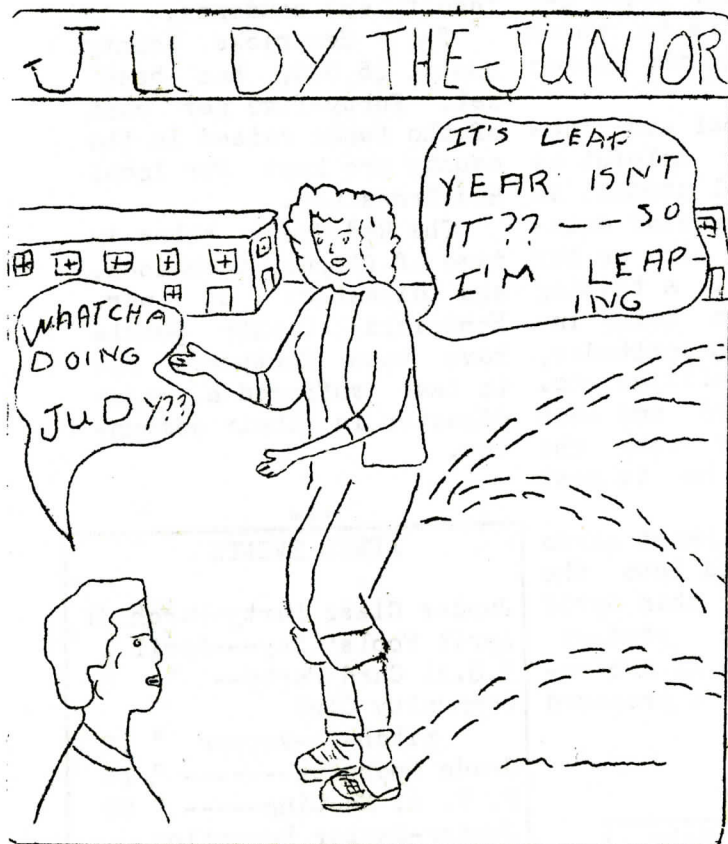 JUDY THE JUNIOR
IT'S LEAP
YEAR ISN'T
IT?? -- SO
I'M LEAP-
ING
WHATCHA
DOING
JUDY??